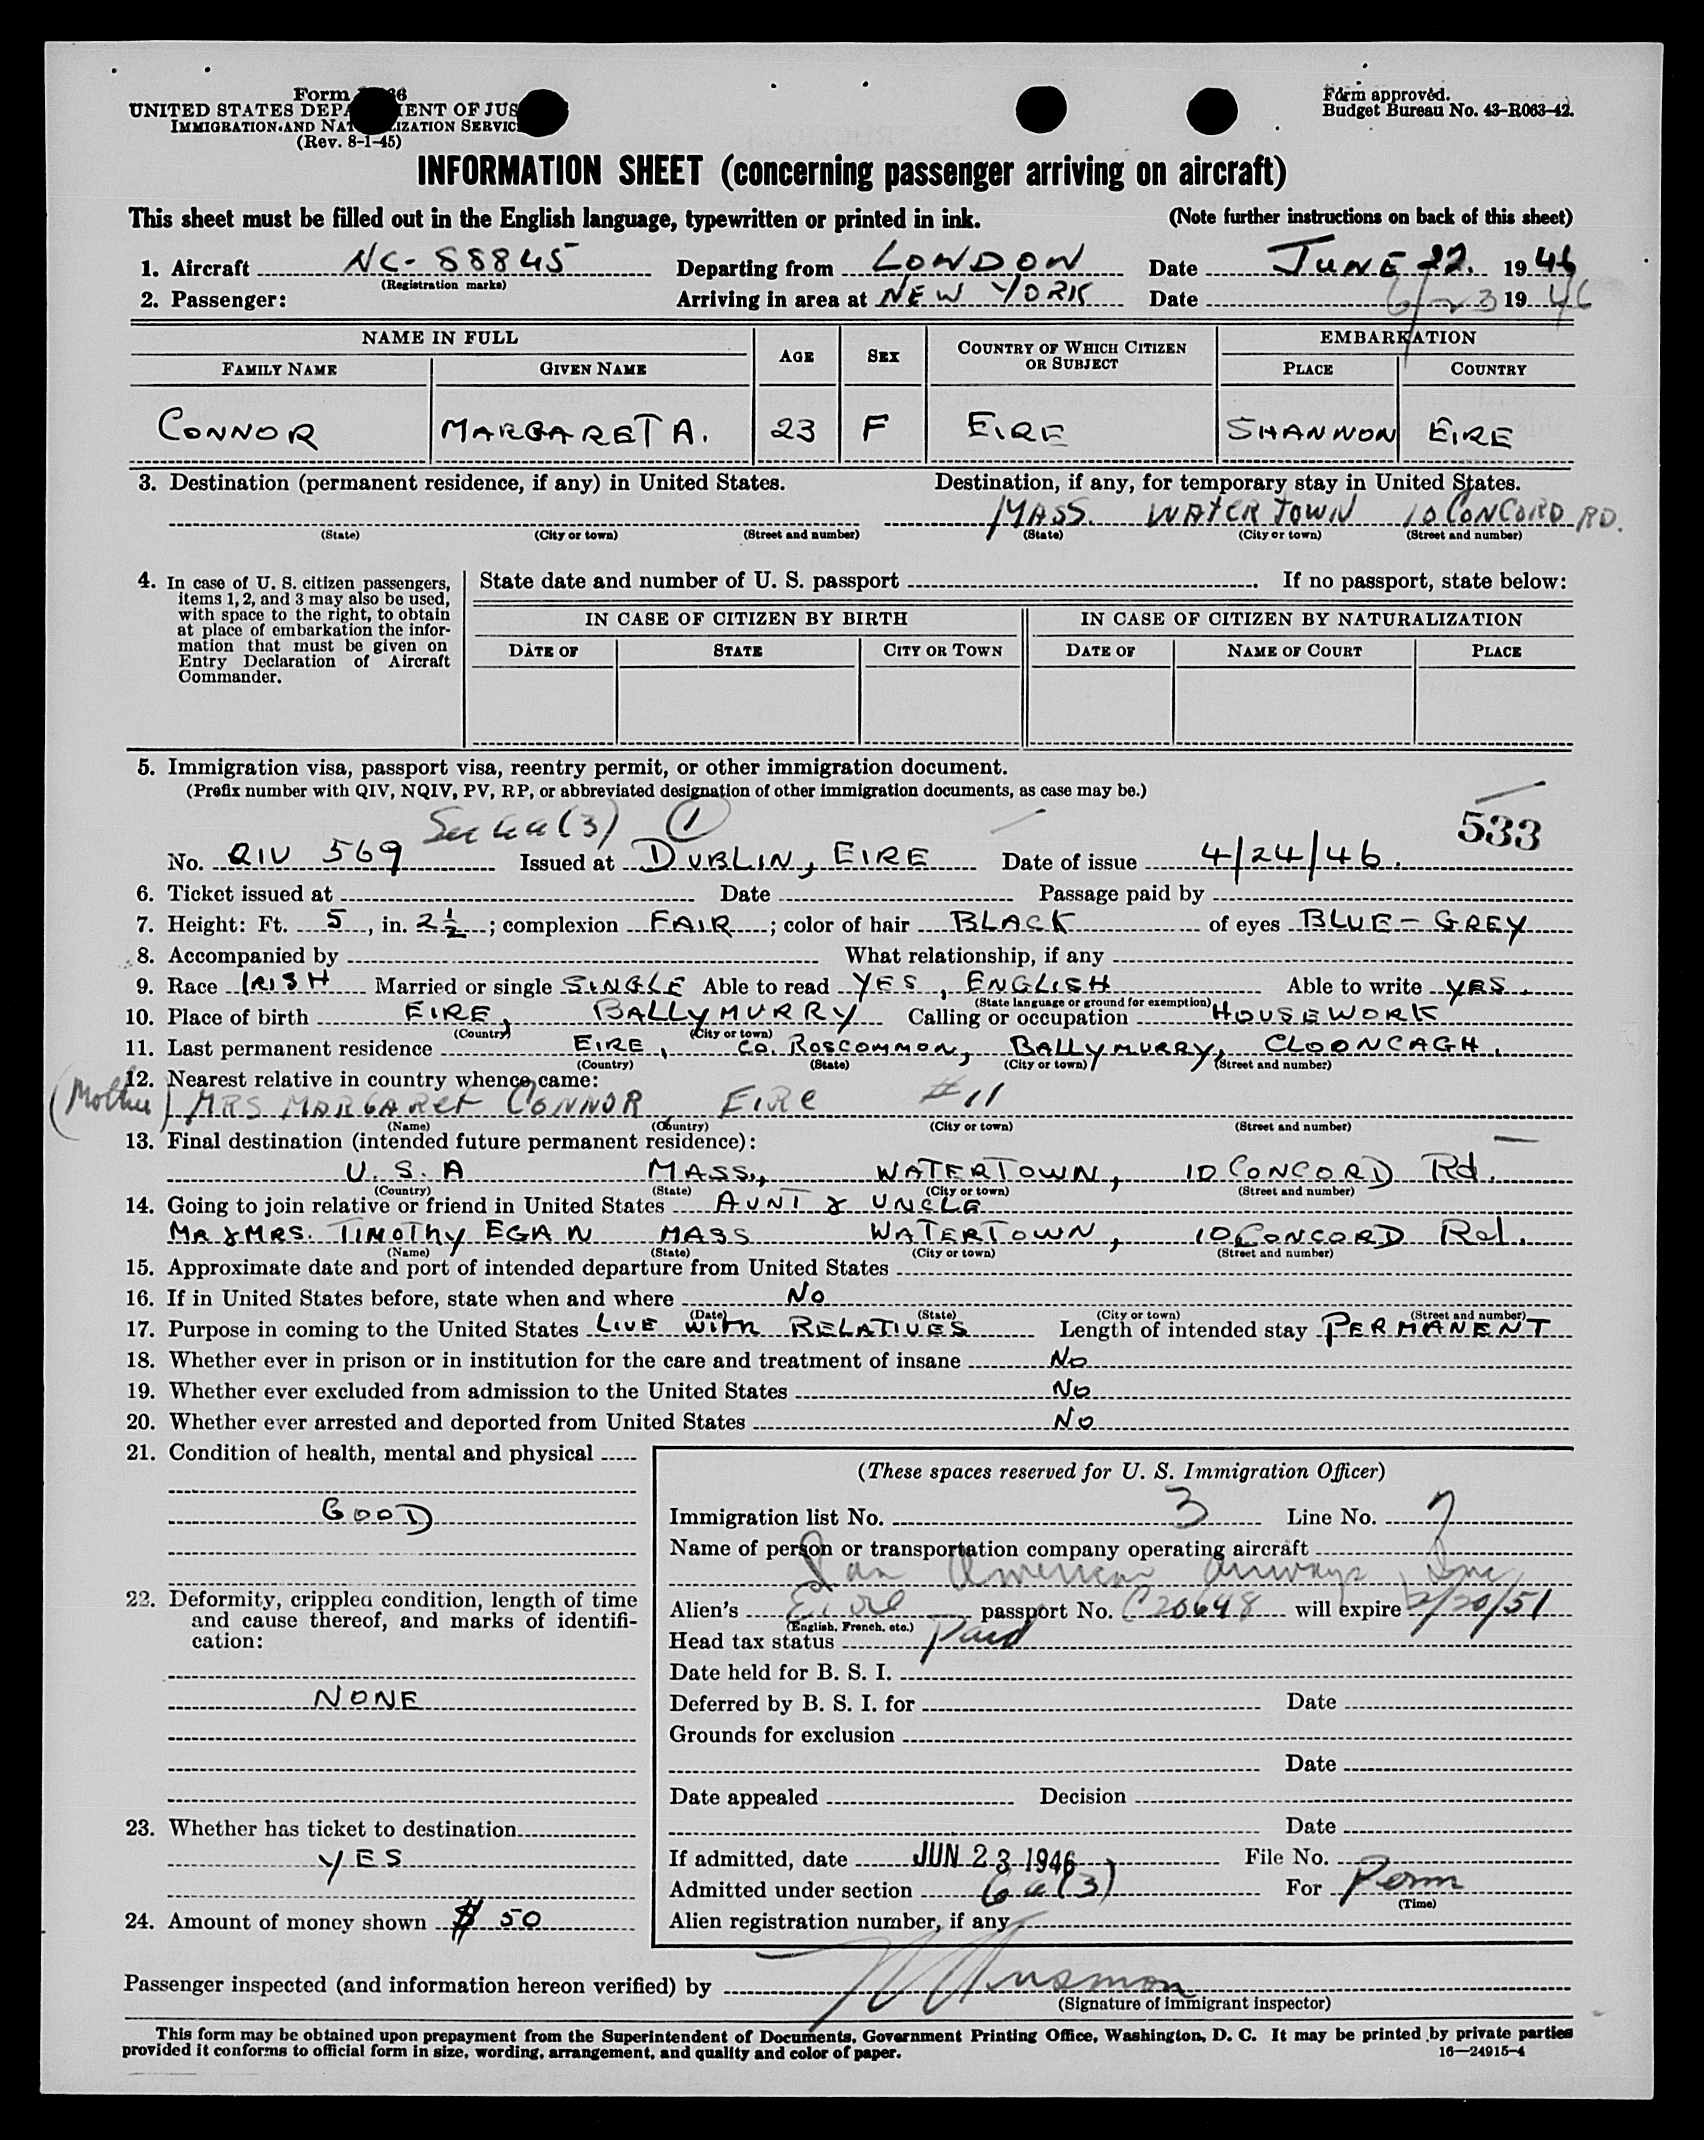 Form 36
UNITED STATES DEPA ENT OF JUS
IMMIGRATION AND NAT IZATION SERVIC
(Rev. 8-1-45)
Form approved.
Budget Bureau No. 43-R063-42.
INFORMATION SHEET (concerning passenger arriving on aircraft)
This sheet must be filled out in the English language, typewritten or printed in ink. (Note further instructions on back of this sheet)
1. Aircraft NC-88845 Departing from LONDON Date JUNE 22. 1946
(Registration marks)
2. Passenger: Arriving in area at NEW YORK Date 6/23 1946
NAME IN FULL AGE SEX COUNTRY OF WHICH CITIZEN OR SUBJECT EMBARKATION
FAMILY NAME GIVEN NAME PLACE COUNTRY
CONNOR MARGARET A. 23 F EIRE SHANNON EIRE
3. Destination (permanent residence, if any) in United States. Destination, if any, for temporary stay in United States.
MASS. WATERTOWN 10 CONCORD RD.
(State) (City or town) (Street and number) (State) (City or town) (Street and number)
4. In case of U. S. citizen passengers, items 1, 2, and 3 may also be used, with space to the right, to obtain at place of embarkation the information that must be given on Entry Declaration of Aircraft Commander.
State date and number of U. S. passport If no passport, state below:
IN CASE OF CITIZEN BY BIRTH IN CASE OF CITIZEN BY NATURALIZATION
DATE OF STATE CITY OR TOWN DATE OF NAME OF COURT PLACE
5. Immigration visa, passport visa, reentry permit, or other immigration document.
(Prefix number with QIV, NQIV, PV, RP, or abbreviated designation of other immigration documents, as case may be.)
Sec 6a(3) 1 533
No. QIV 569 Issued at DUBLIN, EIRE Date of issue 4/24/46.
6. Ticket issued at Date Passage paid by
7. Height: Ft. 5, in. 2½; complexion FAIR; color of hair BLACK of eyes BLUE-GREY
8. Accompanied by What relationship, if any
9. Race IRISH Married or single SINGLE Able to read YES, ENGLISH Able to write YES.
(State language or ground for exemption)
10. Place of birth EIRE, BALLYMURRY Calling or occupation HOUSEWORK
(Country) (City or town)
11. Last permanent residence EIRE, CO. ROSCOMMON, BALLYMURRY, CLOONCAGH.
(Country) (State) (City or town) (Street and number)
12. Nearest relative in country whence came:
(Mother) MRS MARGARET CONNOR, EIRE #11
(Name) (Country) (City or town) (Street and number)
13. Final destination (intended future permanent residence):
U.S.A MASS., WATERTOWN, 10 CONCORD Rd.
(Country) (State) (City or town) (Street and number)
14. Going to join relative or friend in United States AUNT & UNCLE
MR & MRS. TIMOTHY EGAN MASS WATERTOWN, 10 CONCORD Rd.
(Name) (State) (City or town) (Street and number)
15. Approximate date and port of intended departure from United States
16. If in United States before, state when and where No
(Date) (State) (City or town) (Street and number)
17. Purpose in coming to the United States LIVE WITH RELATIVES Length of intended stay PERMANENT
18. Whether ever in prison or in institution for the care and treatment of insane No
19. Whether ever excluded from admission to the United States No
20. Whether ever arrested and deported from United States No
21. Condition of health, mental and physical
GOOD
22. Deformity, crippled condition, length of time and cause thereof, and marks of identification:
NONE
23. Whether has ticket to destination
YES
24. Amount of money shown $ 50
(These spaces reserved for U. S. Immigration Officer)
Immigration list No. 3 Line No. 7
Name of person or transportation company operating aircraft
Pan American Airways Inc
Alien's Eire passport No. C20648 will expire 2/20/51
(English, French, etc.)
Head tax status Paid
Date held for B. S. I.
Deferred by B. S. I. for Date
Grounds for exclusion
Date
Date appealed Decision
Date
If admitted, date JUN 23 1946 File No.
Admitted under section 6a(3) For Perm
(Time)
Alien registration number, if any
Passenger inspected (and information hereon verified) by
(Signature of immigrant inspector)
This form may be obtained upon prepayment from the Superintendent of Documents, Government Printing Office, Washington, D. C. It may be printed by private parties
provided it conforms to official form in size, wording, arrangement, and quality and color of paper. 16—24915-4